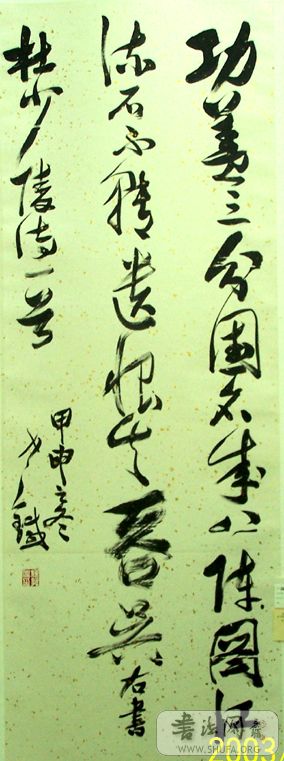 功盖三分国名成八陣圖江
流石不轉遺恨失吞吴右書
杜少陵詩一首
甲申之冬
书法网
WWW.SHUFA.ORG
2003/